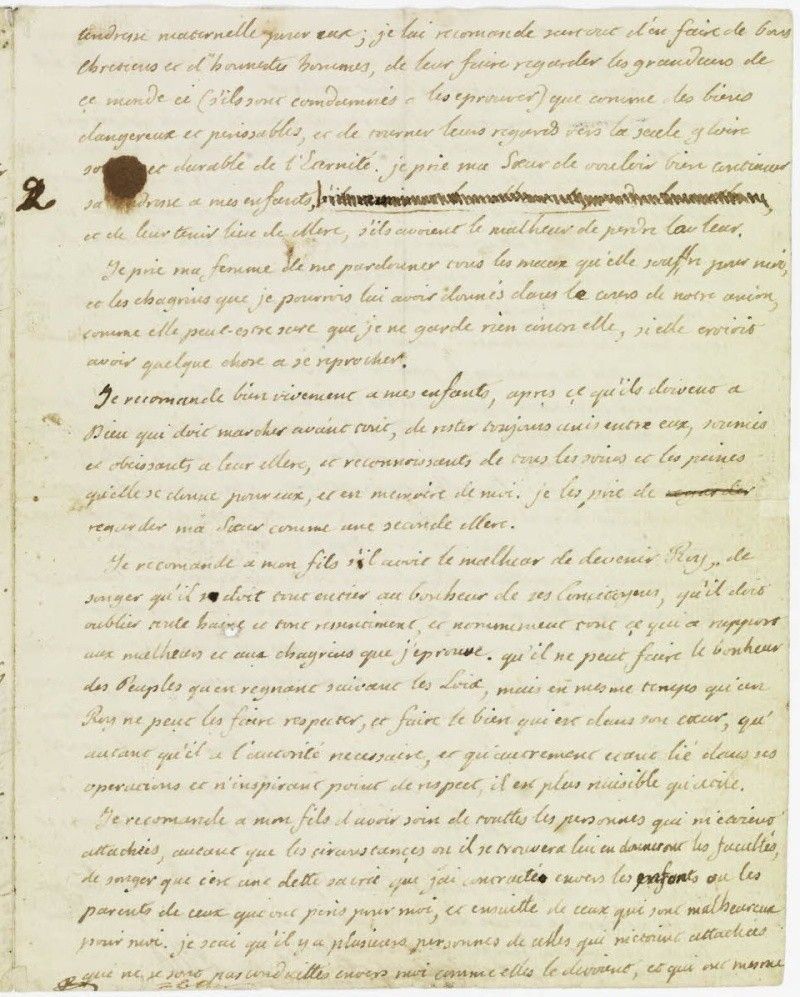 tendresse maternelle pour eux; je lui recomande surtout d'en faire de bons
Chretiens et d'honnestes hommes, de leur faire regarder les grandeurs de
ce monde ci (s'ils sont condamnés a les eprouver) que comme des biens
dangereux et perissables, et de tourner leurs regards vers la seule gloire
so et durable de l'Eternité. je prie ma Sœur de vouloir bien continuer
2 sa ndresse a mes enfants,
et de leur tenir lieu de Mere, s'ils avoient le malheur de perdre la leur.
Je prie ma femme de me pardonner tous les maux qu'elle souffre pour moi,
et les chagrins que je pourrois lui avoir donnés dans le cours de notre union,
comme elle peut-estre sure que je ne garde rien contre elle, si elle croioit
avoir quelque chose a se reprocher.
Je recomande bien vivement a mes enfants, apres ce qu'ils doivent a
Dieu qui doit marcher avant tout, de rester toujours unis entre eux, soumis
et obeissants a leur Mere, et reconnoissants de tous les soins et les peines
qu'elle se donne pour eux, et en memoire de moi. je les prie de regarder
regarder ma Sœur comme une seconde Mere.
Je recomande a mon fils s'il avoit le malheur de devenir Roy, de
songer qu'il se doit tout entier au bonheur de ses Concitoyens, qu'il doit
oublier toute haine et tout ressentiment, et nommement tout ce qui a rapport
aux malheurs et aux chagrins que j'eprouve. qu'il ne peut faire le bonheur
des Peuples qu'en regnant suivant les Loix, mais en mesme temps qu'un
Roy ne peut les faire respecter, et faire le bien qui est dans son cœur, qu'
autant qu'il a l'autorité necessaire, et qu'autrement etant lié dans ses
operations et n'inspirant point de respect, il est plus nuisible qu'utile.
Je recomande a mon fils d'avoir soin de touttes les personnes qui m'etoient
attachées, autant que les circonstances ou il se trouvera lui en donneront les facultés,
de songer que c'est une dette sacrée que j'ai contractée envers les enfants ou les
parents de ceux qui ont peris pour moi, et ensuitte de ceux qui sont malheureux
pour moi. je scai qu'il y a plusieurs personnes de celles qui m'etoient attachées
qui ne se sont pas conduittes envers moi comme elles le devoient, et qui ont mesme